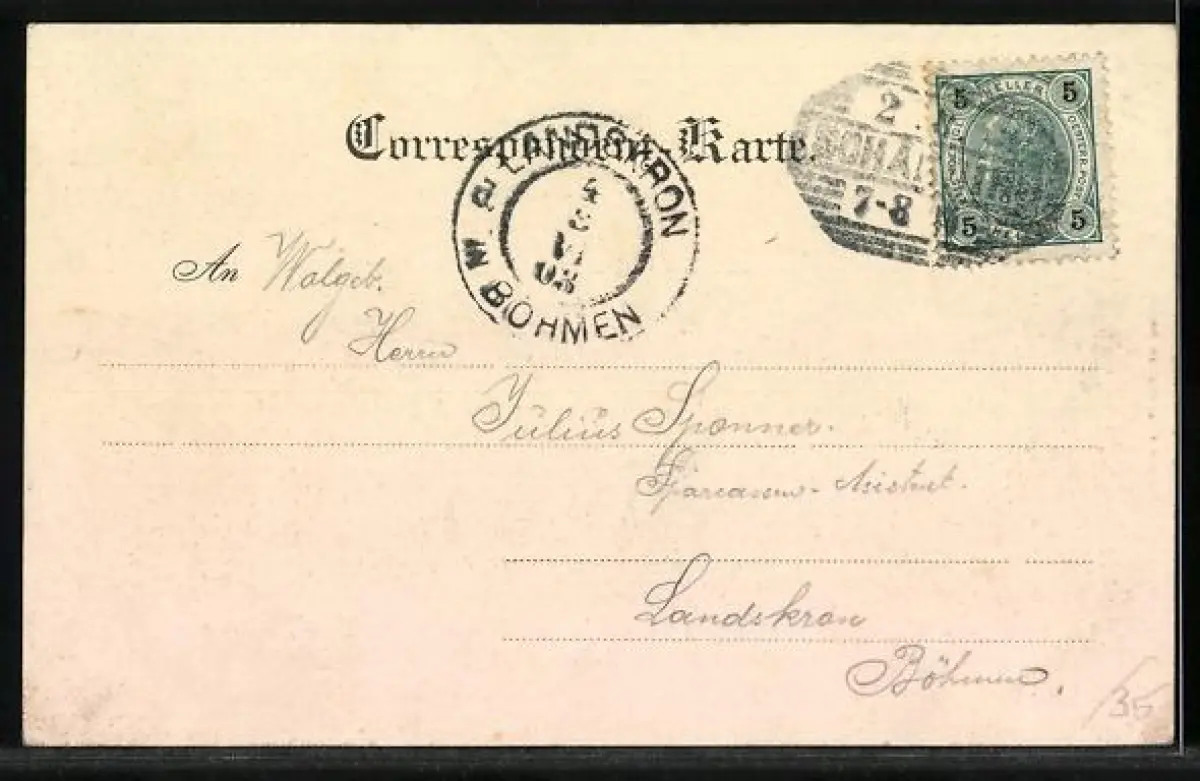 Correspondenz-Karte.
2.
SCHA
7-8
5 HELLER 5
5 5
LANDSKRON
4
03
BÖHMEN
An Wolgeb.
Herrn
Julius Sponner.
Sparcassen-Asistent.
Landskron
Böhmen.
/35